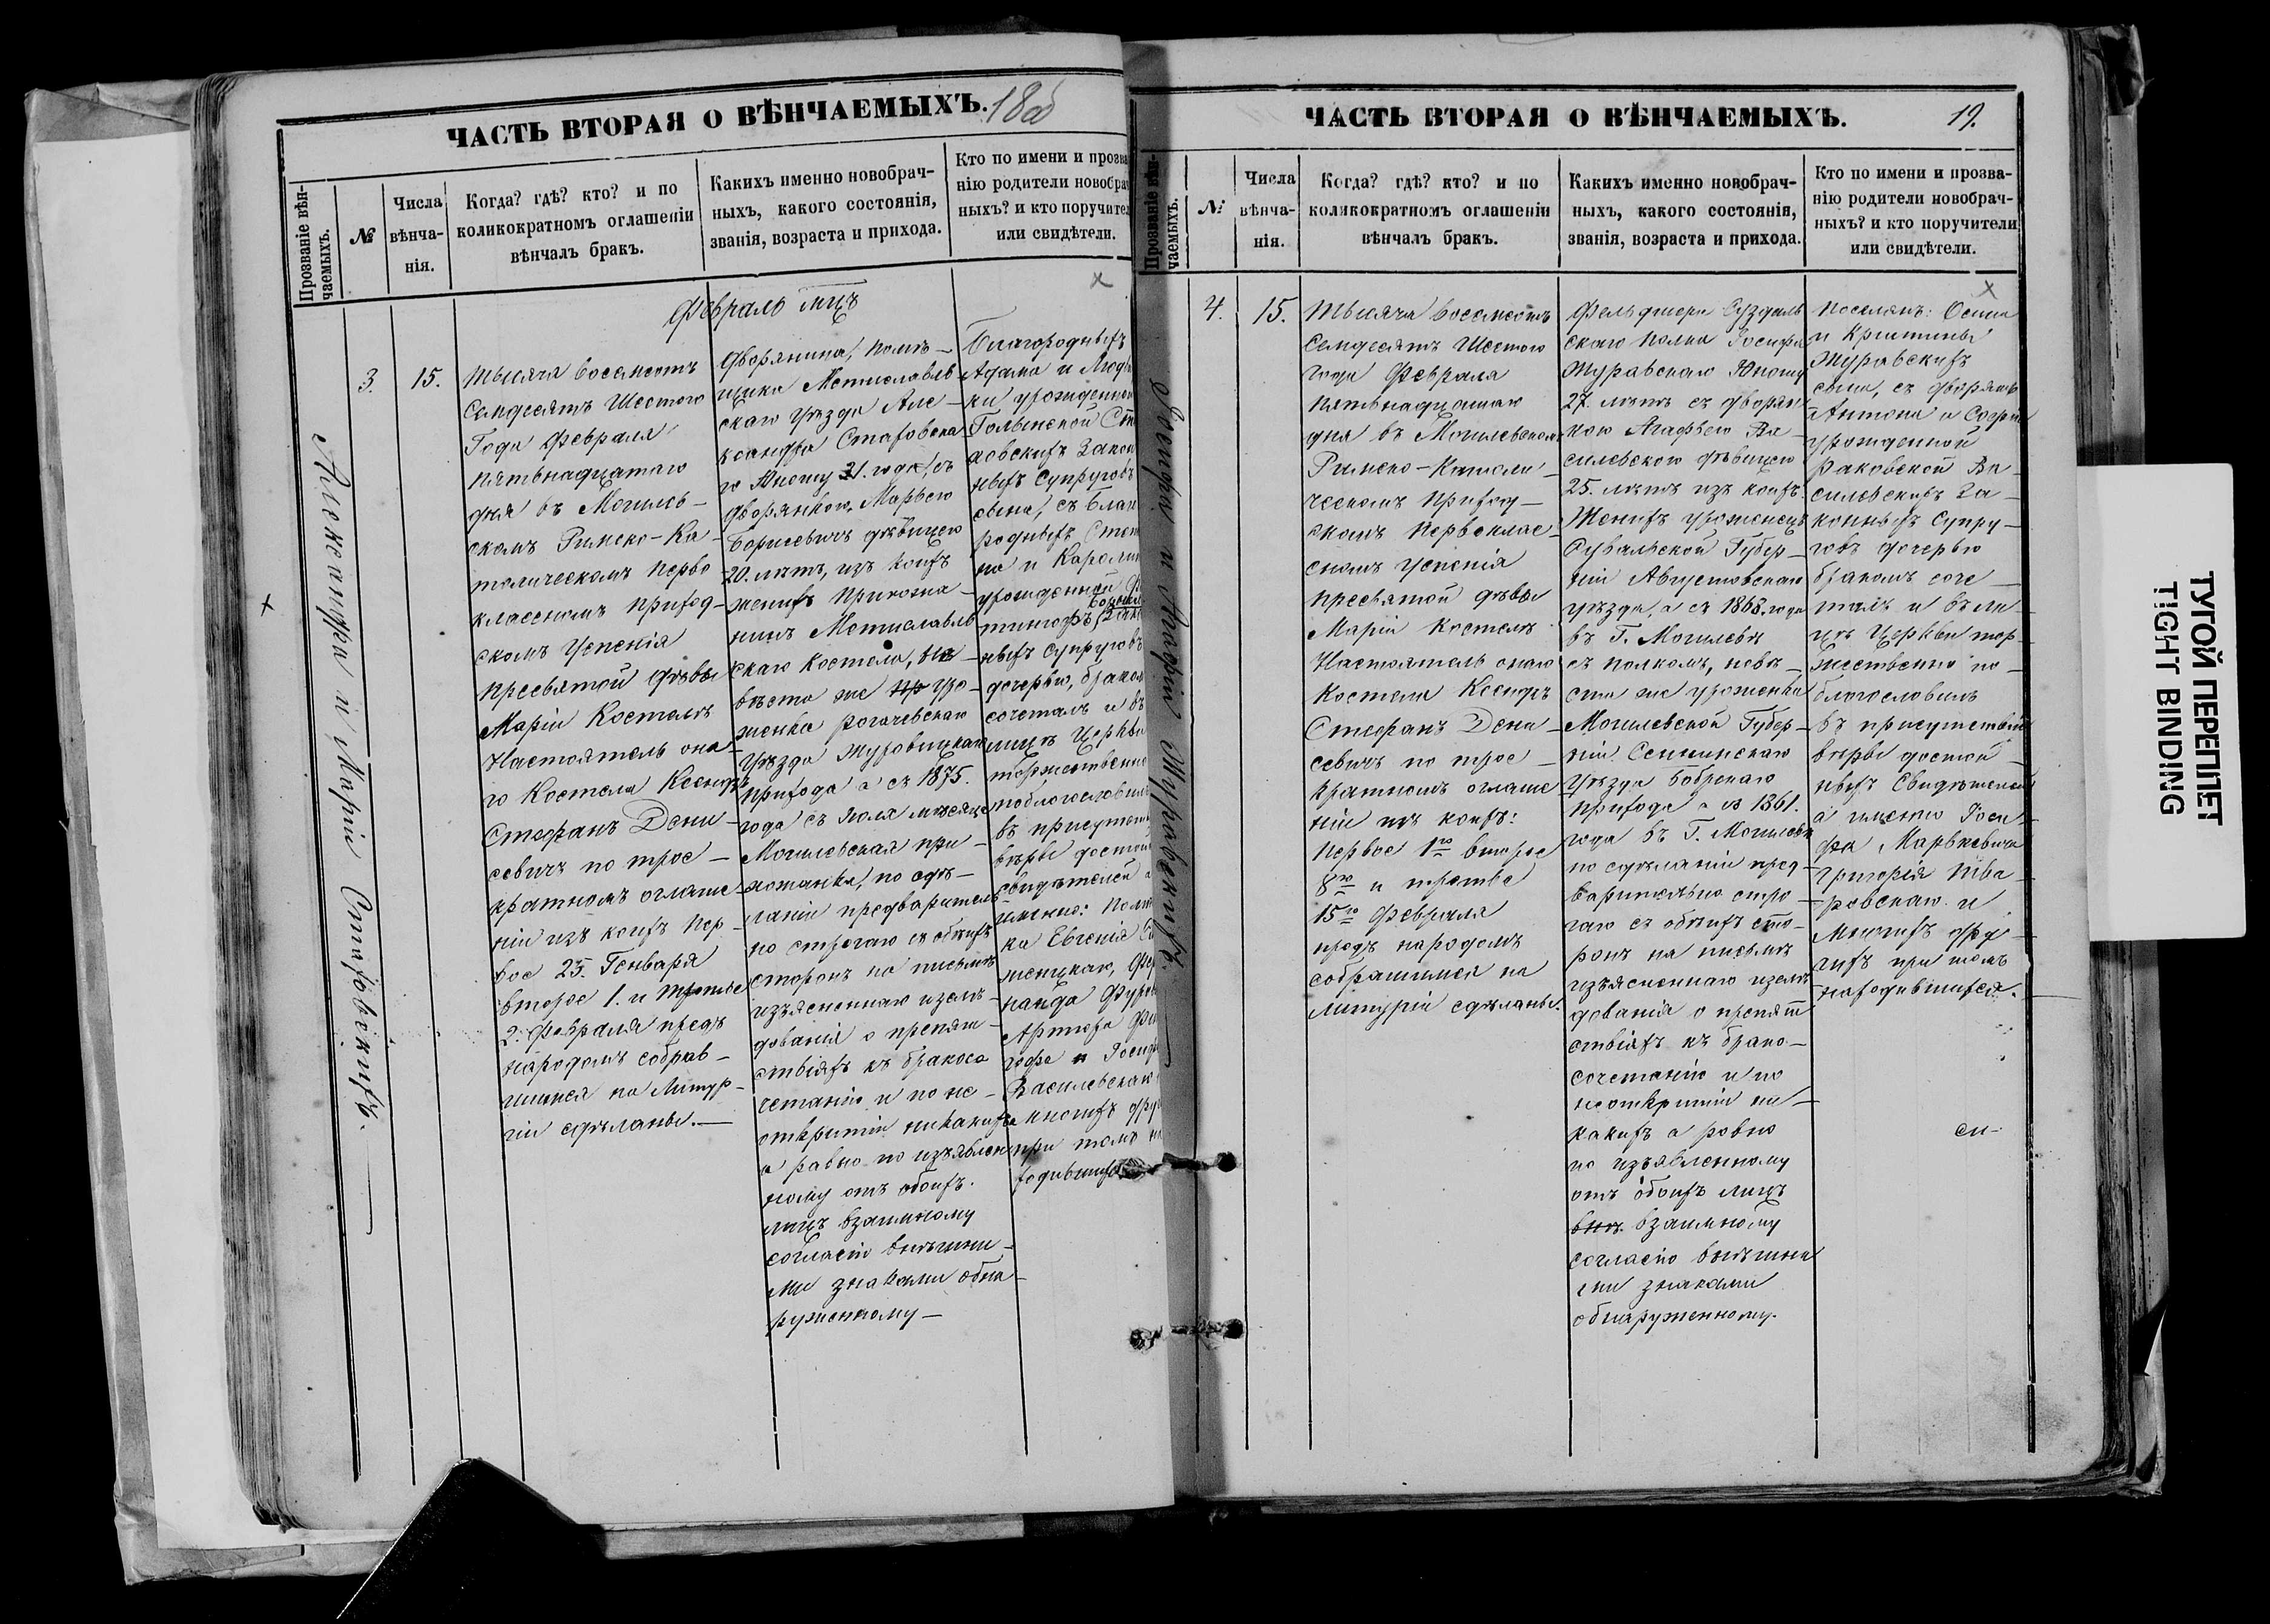 ЧАСТЬ ВТОРАЯ О ВѢНЧАЕМЫХЪ.
18об
Прозваніе вѣн-
чаемыхъ.
№
Числа
вѣнча-
нія.
Когда? гдѣ? кто? и по
коликократномъ оглашеніи
вѣнчалъ бракъ.
Какихъ именно новобрач-
ныхъ, какого состоянія,
званія, возраста и прихода.
Кто по имени и прозва
нію родители новобра
ныхъ? и кто поручител
или свидѣтели.
Февраль мцъ
Александра и Маріи Стаховскихъ.
3.
15.
Тысяча восемсотъ
Семдесятъ Шестого
Года Февраля
пятьнадцатаго
дня въ Могилев-
скомъ Римско-Ка-
толическомъ перво
классномъ приход-
скомъ Успенія
пресвятой Дѣвы
Маріи Костелѣ
Настоятель она-
го Костела Ксендзъ
Стефанъ Дени-
севичъ по трое-
кратномъ оглаше-
ніи изъ коихъ пер-
вое 25. Генваря
второе 1. и третье
2. Февраля предъ
народомъ собрав-
шимся на Литур-
гіи сдѣланы.—
Дворянина, помѣ-
щика Мстиславль
скаго уѣзда Але-
ксандра Стаховска
го Юношу 21. года, съ
дворянкою, Марьею
Борисевичъ дѣвицею
20. лѣтъ, изъ коихъ
женихъ прихожа-
нинъ Мстиславль
скаго костела, не-
вѣста же уро-
женка рогачевскаго
уѣзда Журовицкаго
прихода а съ 1875.
года съ Іюля мѣсяца
Могилевская при-
хожанка, по сдѣ-
ланіи предваритель
но строгаго съ обѣихъ
сторонъ на письмѣ
изъясненнаго изслѣ-
дованія о препят-
ствіяхъ къ бракосо
четанію и по не-
открытіи никакихъ
а равно по изъявлен
ному отъ обоихъ
лицъ взаимному
согласію внѣшни-
ми знаками обна-
руженному—
Благородныхъ
Адама и
урожденной
Голынской
ховскихъ Закон
ныхъ Супруговъ
сына, съ Благо
родныхъ
на и Кароли
урожденной
ныхъ Супруговъ
дочерью, браком
сочеталъ и въ
лицѣ Церкви
торжественно
поблагословилъ
въ присутств
вѣры достой
свидѣтелей а
именно:
ка Евгенія
Артура
Василевскаго
и многихъ дру
при томъ на
ходившихся
ЧАСТЬ ВТОРАЯ О ВѢНЧАЕМЫХЪ.
19.
Прозваніе вѣн-
чаемыхъ.
№
Числа
вѣнча-
нія.
Когда? гдѣ? кто? и по
коликократномъ оглашеніи
вѣнчалъ бракъ.
Какихъ именно новобрач-
ныхъ, какого состоянія,
званія, возраста и прихода.
Кто по имени и прозва-
нію родители новобрач-
ныхъ? и кто поручители
или свидѣтели.
Іосифа и Агафіи Журавскихъ.
4.
15.
Тысяча восемсотъ
Семдесятъ Шестого
года Февраля
пятьнадцатаго
дня въ Могилевскомъ
Римско-Католи-
ческомъ приход-
скомъ первоклас-
сномъ Успенія
пресвятой Дѣвы
Маріи Костелѣ
Настоятель онаго
Костела Ксендзъ
Стефанъ Дени-
севичъ по трое-
кратномъ оглаше
ніи изъ коихъ:
первое 1го второе
8го и третье
15го Февраля
предъ народомъ
собравшимся на
литургіи сдѣланы.
Фельдшера Суздаль
скаго полка Іосифа
Журавскаго Юношу
27. лѣтъ съ дворян-
кою Агафьею Ва-
силевскою дѣвицею
25. лѣтъ изъ коихъ
Женихъ уроженецъ
Сувальской Губер-
ніи Августовскаго
уѣзда, а съ 1868. года
въ Г. Могилевѣ
съ полкомъ, невѣ-
ста же уроженка
Могилевской Губер-
ніи Сеннинскаго
уѣзда Бобрскаго
прихода а съ 1861.
года въ Г. Могилевѣ
по сдѣланіи пред-
варительно стро-
гаго съ обѣихъ сто-
ронъ на письмѣ
изъясненнаго изслѣ
дованія о препят
ствіяхъ къ брако-
сочетанію и по
неоткрытіи ни-
какихъ а ровно
по изъявленному
отъ обоихъ лицъ
взаимному
согласію внѣшни
ми знаками
обнаруженному.
Поселянъ: Осипа
и Кристины
Журавскихъ
сына, съ дворянъ
Антона и Софіи
урожденной
Раковской Ва-
силевскихъ За-
конныхъ Супру-
говъ дочерью
бракомъ соче-
талъ и въ ли-
цѣ Церкви тор-
жественно по-
благословилъ
въ присутствіи
вѣры достой-
ныхъ Свидѣтелей
а именно Іоси-
фа Марькевича
Григорія Тва-
ровскаго и
Многихъ дру-
гихъ при томъ
находившихся.
ТУГОЙ ПЕРЕПЛЕТ
TIGHT BINDING